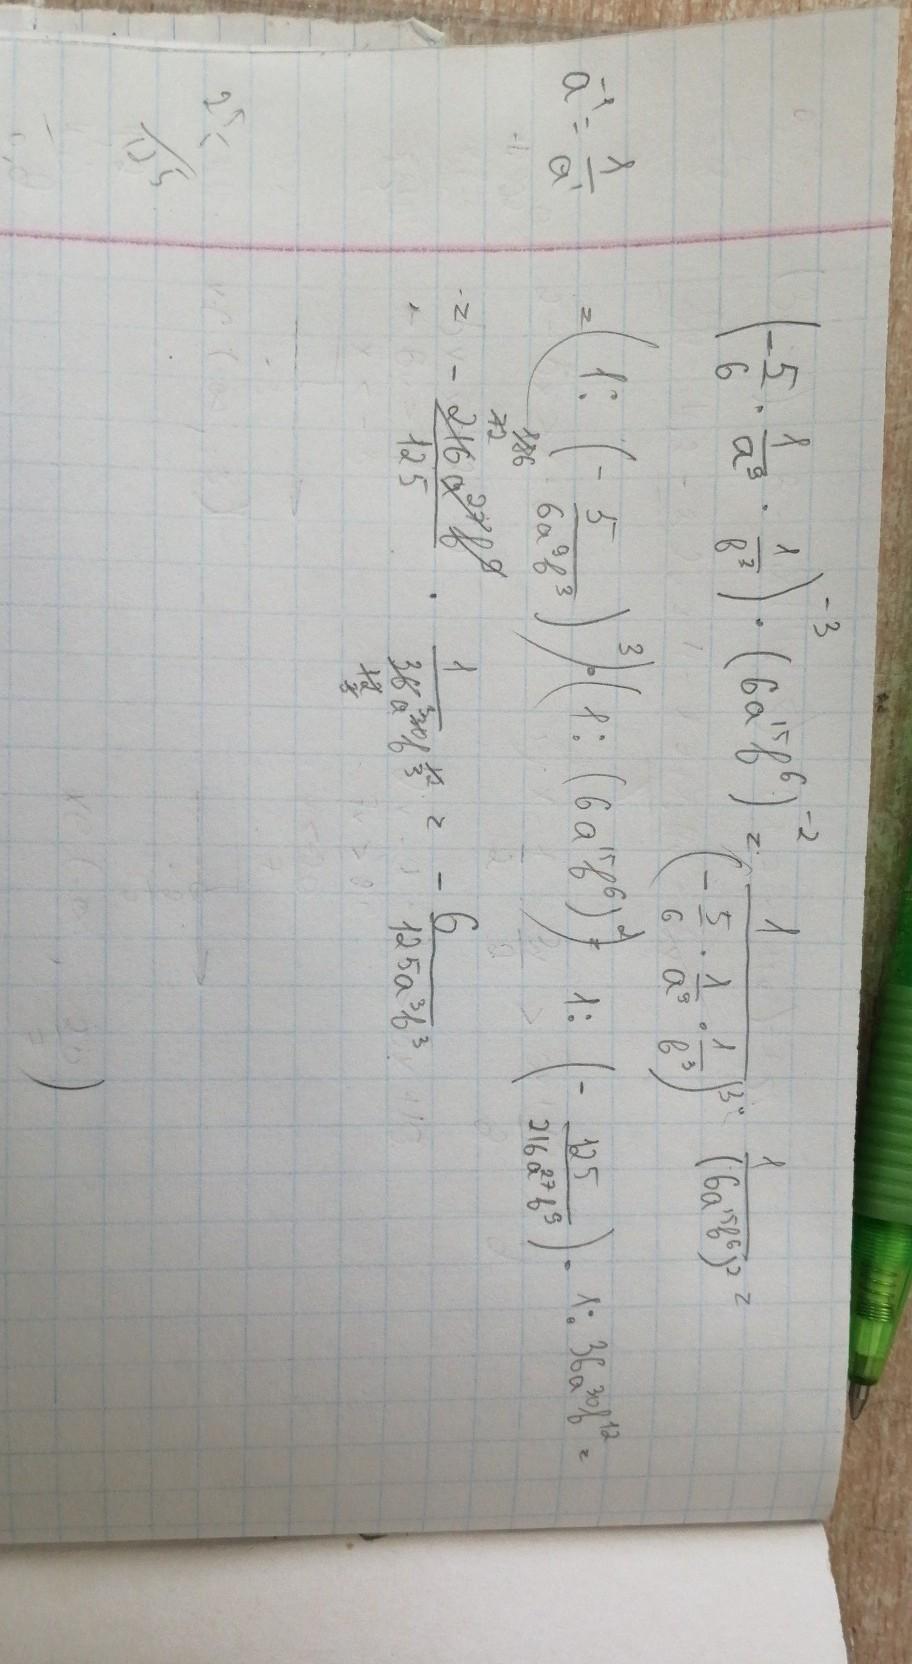 a⁻¹ = 1/a¹
(-5/6 · 1/a⁹ · 1/b³)⁻³ · (6a¹⁵b⁶)⁻² = 1/(-5/6 · 1/a⁹ · 1/b³)³ · 1/(6a¹⁵b⁶)² =
= (1 : (-5/6a⁹b³))³ · (1 : (6a¹⁵b⁶))² = 1 : (-125/216a²⁷b⁹) · 1 : 36a³⁰b¹² =
= - 216a²⁷b⁹/125 · 1/36a³⁰b¹² = - 6/125a³b³